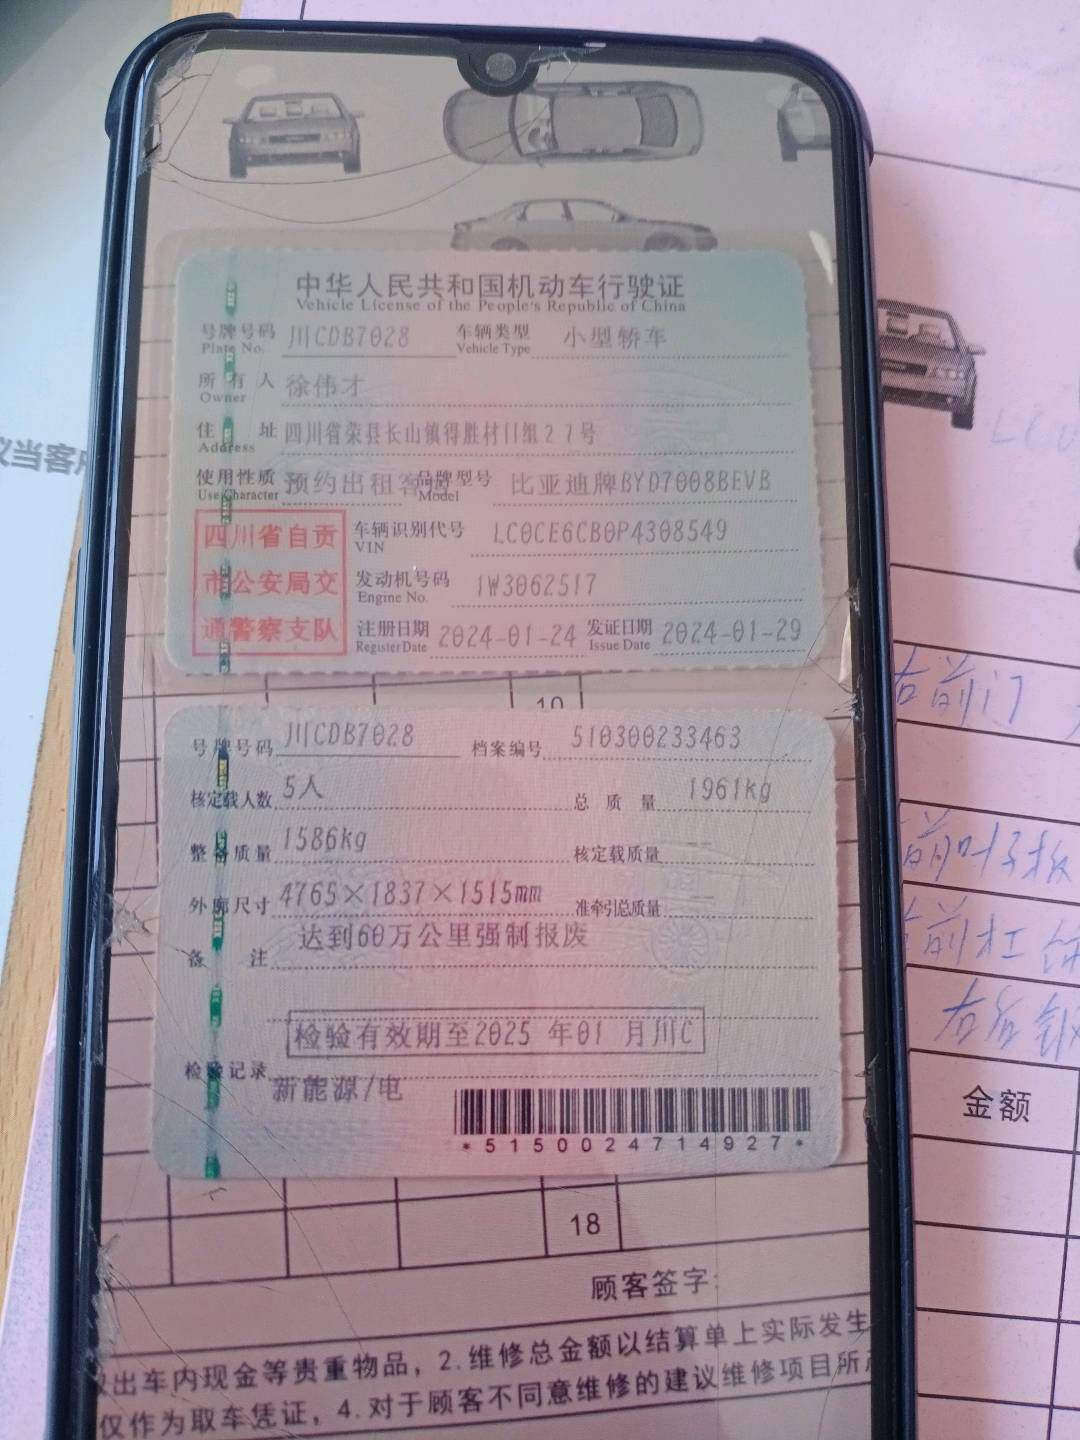 中华人民共和国机动车行驶证
Vehicle License of the People's Republic of China
号牌号码 川CDB7028 车辆类型 小型轿车
Plate No. Vehicle Type
所有人 徐伟才
Owner
住址 四川省荣县长山镇得胜村11组27号
Address
使用性质 预约出租客 品牌型号 比亚迪牌BYD7008BEVB
Use Character Model
四川省自贡
市公安局交
通警察支队
车辆识别代号 LC0CE6CB0P4308549
VIN
发动机号码 1W3062517
Engine No.
注册日期 2024-01-24 发证日期 2024-01-29
Register Date Issue Date
10
号牌号码 川CDB7028 档案编号 510300233463
核定载人数 5人 总质量 1961kg
整备质量 1586kg 核定载质量 --
外廓尺寸 4765×1837×1515mm 准牵引总质量 --
备注 达到60万公里强制报废
检验有效期至2025年01月川C
检验记录
新能源/电
*5150024714927*
18
顾客签字:
出车内现金等贵重物品，2.维修总金额以结算单上实际发生
仅作为取车凭证，4.对于顾客不同意维修的建议维修项目所
议当客户
右前门
前叶子板
前杠
右后
金额